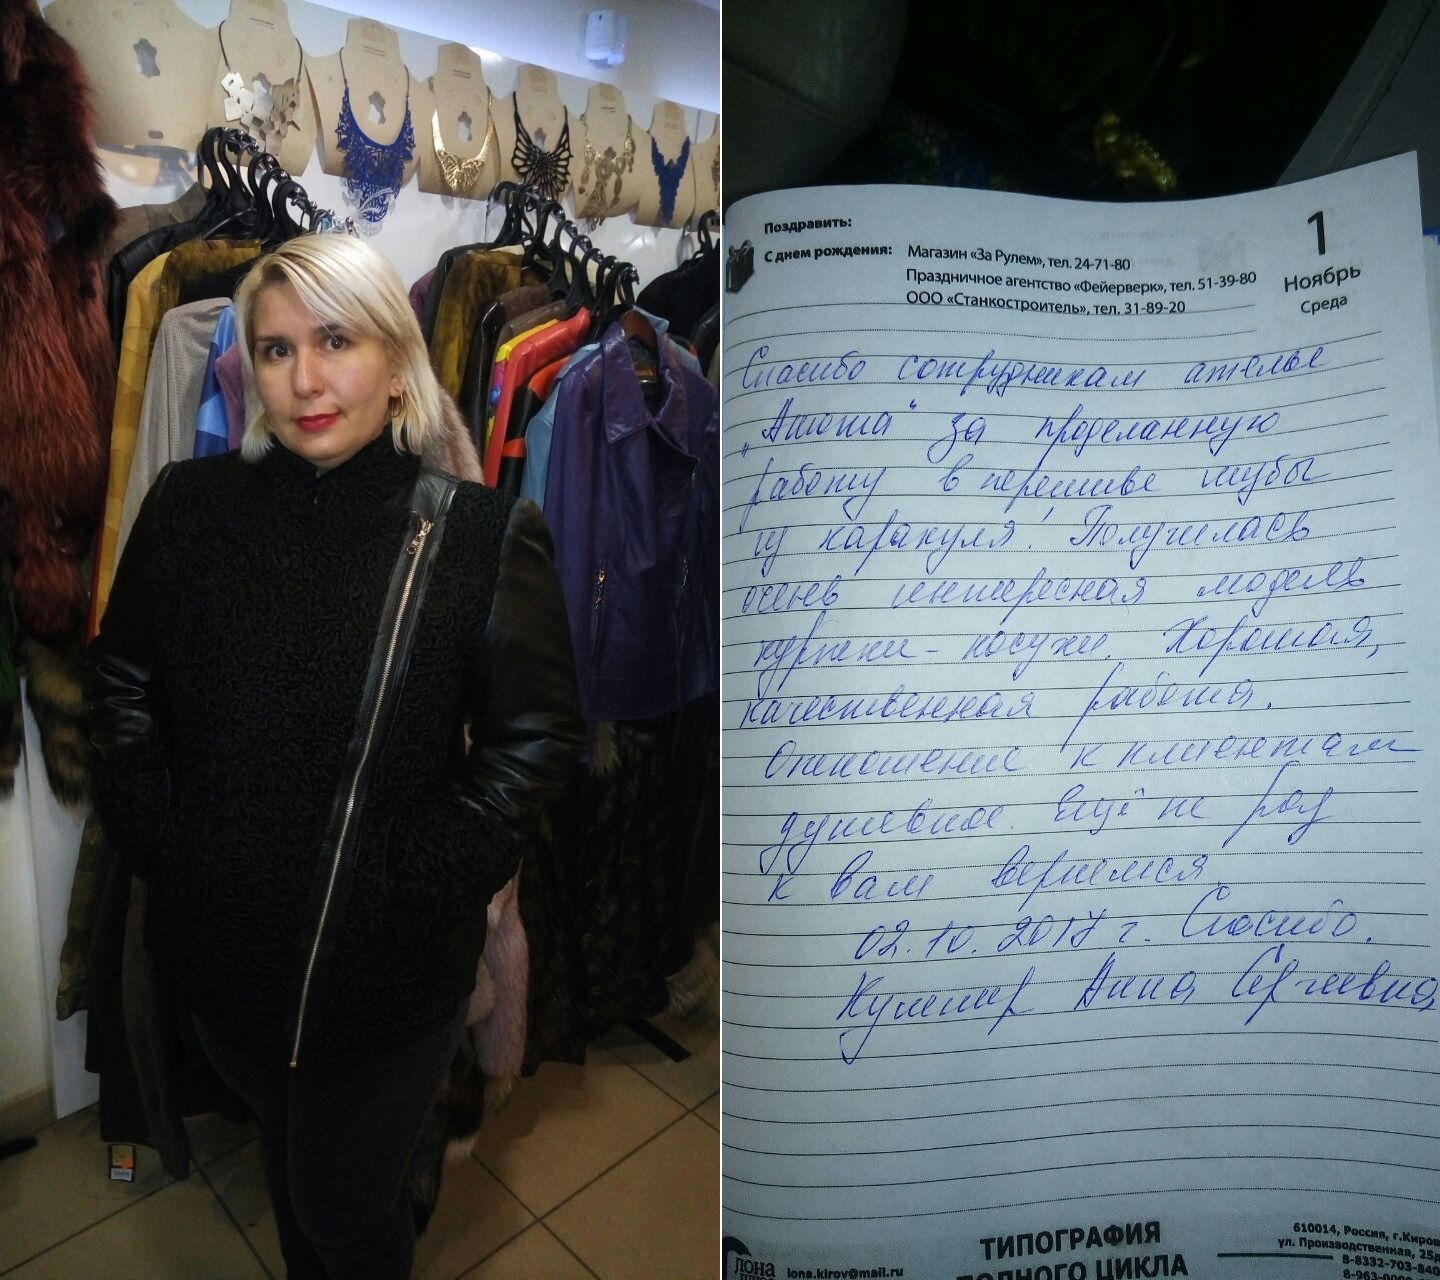 Поздравить:
С днем рождения: Магазин «За Рулем», тел. 24-71-80
Праздничное агентство «Фейерверк», тел. 51-39-80
ООО «Станкостроитель», тел. 31-89-20
1
Ноябрь
Среда
Спасибо сотрудникам ателье
за проделанную
работу в перешиве шубы
из каракуля! Получилась
очень интересная модель
куртки-косухи. Хорошая,
качественная работа.
Отношение к клиентам
душевное. Ещё не раз
к вам вернемся.
02.10.2017 г. Спасибо.
Анна Сергеевна
ТИПОГРАФИЯ
ПОЛНОГО ЦИКЛА
lona.kirov@mail.ru
610014, Россия, г.Киров
ул. Производственная,
8-8332-703-840